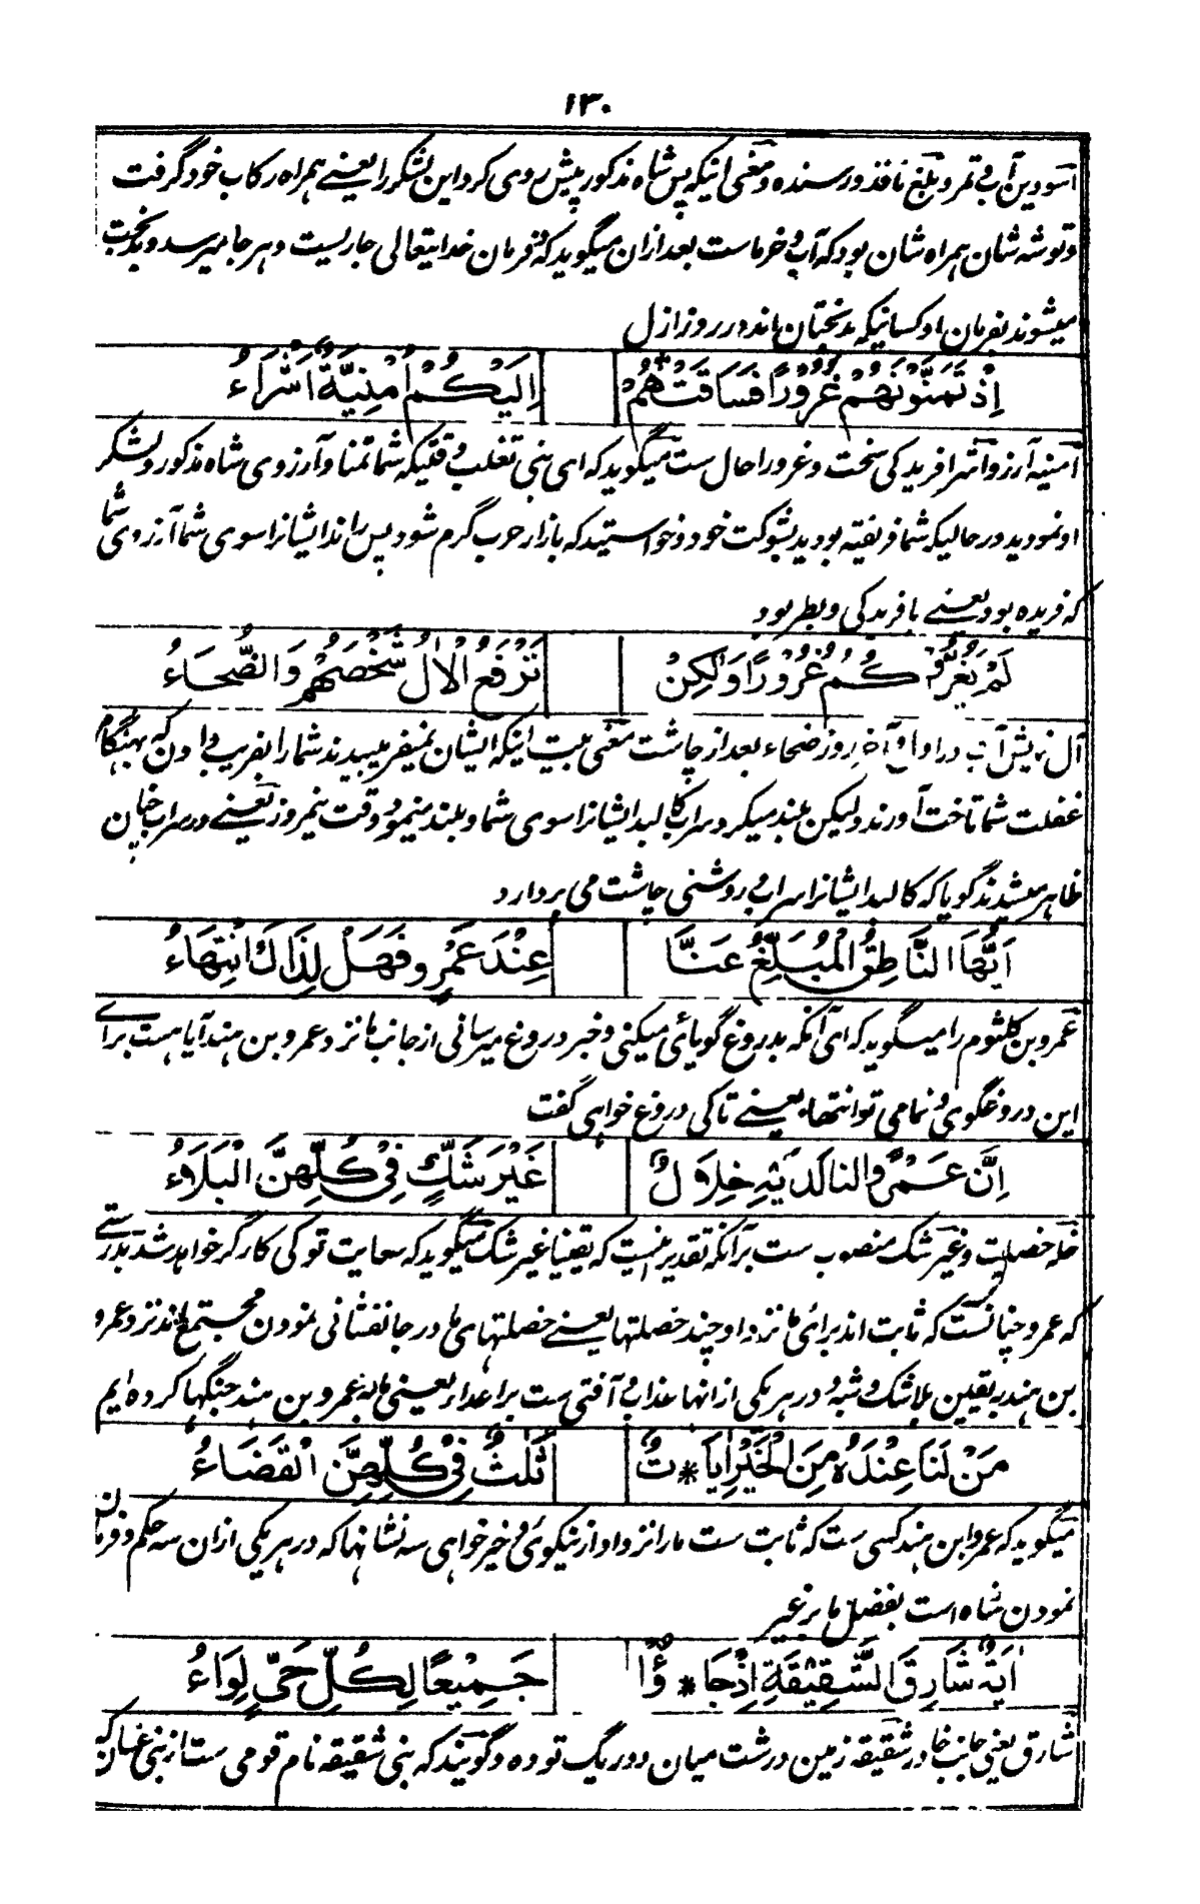 ۱۳۰
اسودین آب و تمر و بلغ نافذ و رسنده و معنی اینکه پس شاه مذکور پیش روی کرد این لشکر را یعنے همراه رکاب خود گرفت
و توشه شان همراه شان بود که آب و خرماست بعد ازان میگوید که فرمان خدایتعالی جاریست و هر جا میرسد و بدبخت
میشوند بفرمان او کسانیکه بدبختان اند در روز ازل
اِذْ تَمَنَّوْنَهُمْ غُرُوْرًا فَسَاقَتْهُمْ اِلَيْكُمْ اُمْنِيَّةٌ اَشْرَاءُ
امنیه آرزو اشرا فریدکی سخت و غرورا حال ست میگوید که ای بنی تغلب وقتیکه شما تمنا و آرزوی شاه مذکور و لشکر
او نمودید در حالیکه شما فریفته بودید بشوکت خود و خواستید که بازار حرب گرم شود پس راند ایشانرا سوی شما آرزوی شما
که فریده بود یعنے با فریدکی و بطر بود
لَمْ يَغُرُّوْكُمْ غُرُوْرًا وَلٰكِنْ تَرْفَعُ الْاٰلُ شَخْصَهُمْ وَالضُّحَاءُ
آل نمایش آب در اول و آخر روز ضحاء بعد از چاشت معنی بیت اینکه ایشان نمیفریبیدند شما را بفریب دادن که بهنگام
غفلت شما تاخت آورند ولیکن بلند میکرد سراب کالبد ایشانرا سوی شما و بلند نیمود وقت نیمروز یعنے در سراب چنان
ظاهر میشدند گویا که کالبد ایشانرا سراب و روشنی چاشت می بردارد
اَيُّهَا النَّاطِقُ الْمُبَلِّغُ عَنَّا عِنْدَ عَمْرٍو فَهَلْ لِذَاكَ انْتِهَاءُ
عمرو بن کلثوم را میگوید که ای آنکه بدروغ گویائی میکنی و خبر دروغ میرسانی از جانب ما نزد عمرو بن هند آیا هست برای
این دروغگوی و نمامی تو انتهاء یعنے تا کی دروغ خواهی گفت
اِنَّ عَمْرًا لنا لديهِ خِلَالٌ غَيْرَ شَكٍّ فِيْ كُلِّهِنَّ الْبَلَاءُ
خله خصلت و غیر شک منصوب ست برآنکه تقدیر اینست که یقینا غیر شک میگوید که سعایت تو کی کارگر خواهد شد بدرستے
که عمرو چنانست که ثابت اند برای ما نزد او چند خصلتها یعنے خصلتهای ما در جانفشانی نمودن مجتمع اند نزد عمرو
بن هند بیقین بلا شک و شبه و در هر یکی از انها عذاب و آفتی ست بر اعدا یعنی ما به عمرو بن هند جنگها کرده ایم
مَنْ لَنَا عِنْدَهُ مِنَ الْخَيْرِ اٰيَا * تٌ ثَلٰثٌ فِيْ كُلِّهِنَّ الْقَضَاءُ
میگوید که عمرو ابن هند کسی ست که ثابت ست ما را نزد او از نیکوئی و خیر خواهی سه نشانها که در هر یکی ازان سه حکم و فرمان
نمودن شاه است بفضل ما بر غیر
اٰيَةٌ شَارِقَ الشَّقِيْقَةِ اِذْ جَا * ؤُا جَمِيْعًا لِكُلِّ حَيٍّ لِوَاءُ
شارق یعنی جانب خاور شقیقه زمین درشت میان دو ریگ توده و گویند که بنی شقیقه نام قومی ست از بنی غسان که